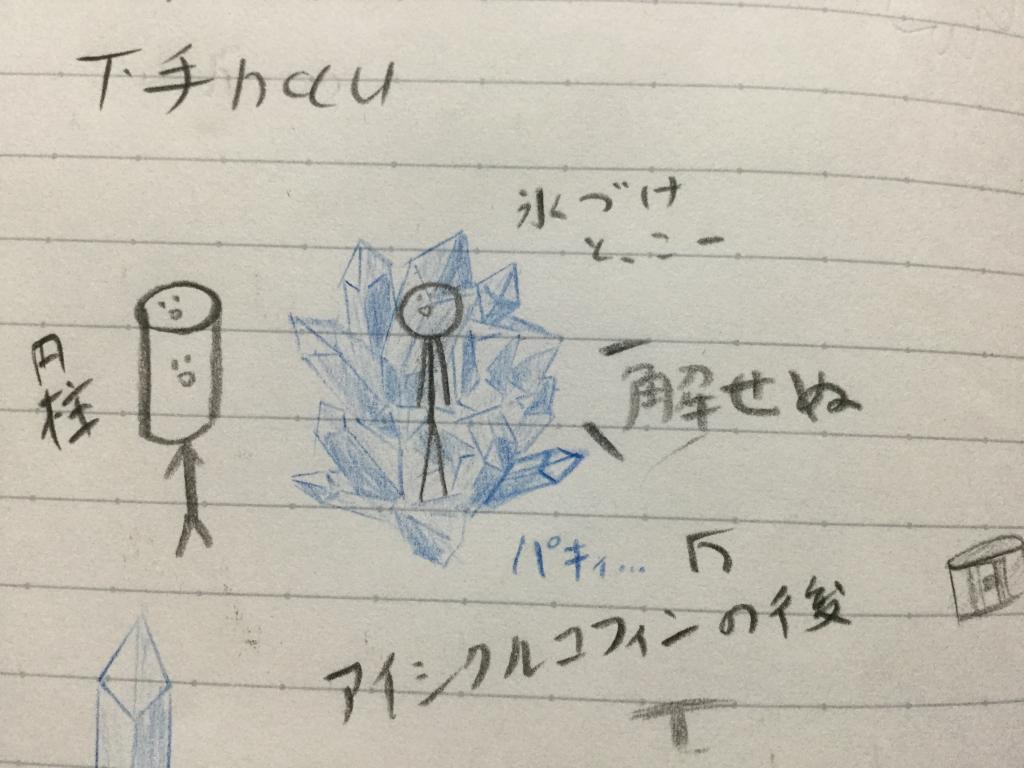 下手nau
氷づけ
とこー
円柱
解せぬ
パキィ…
アイシクルコフィンの後